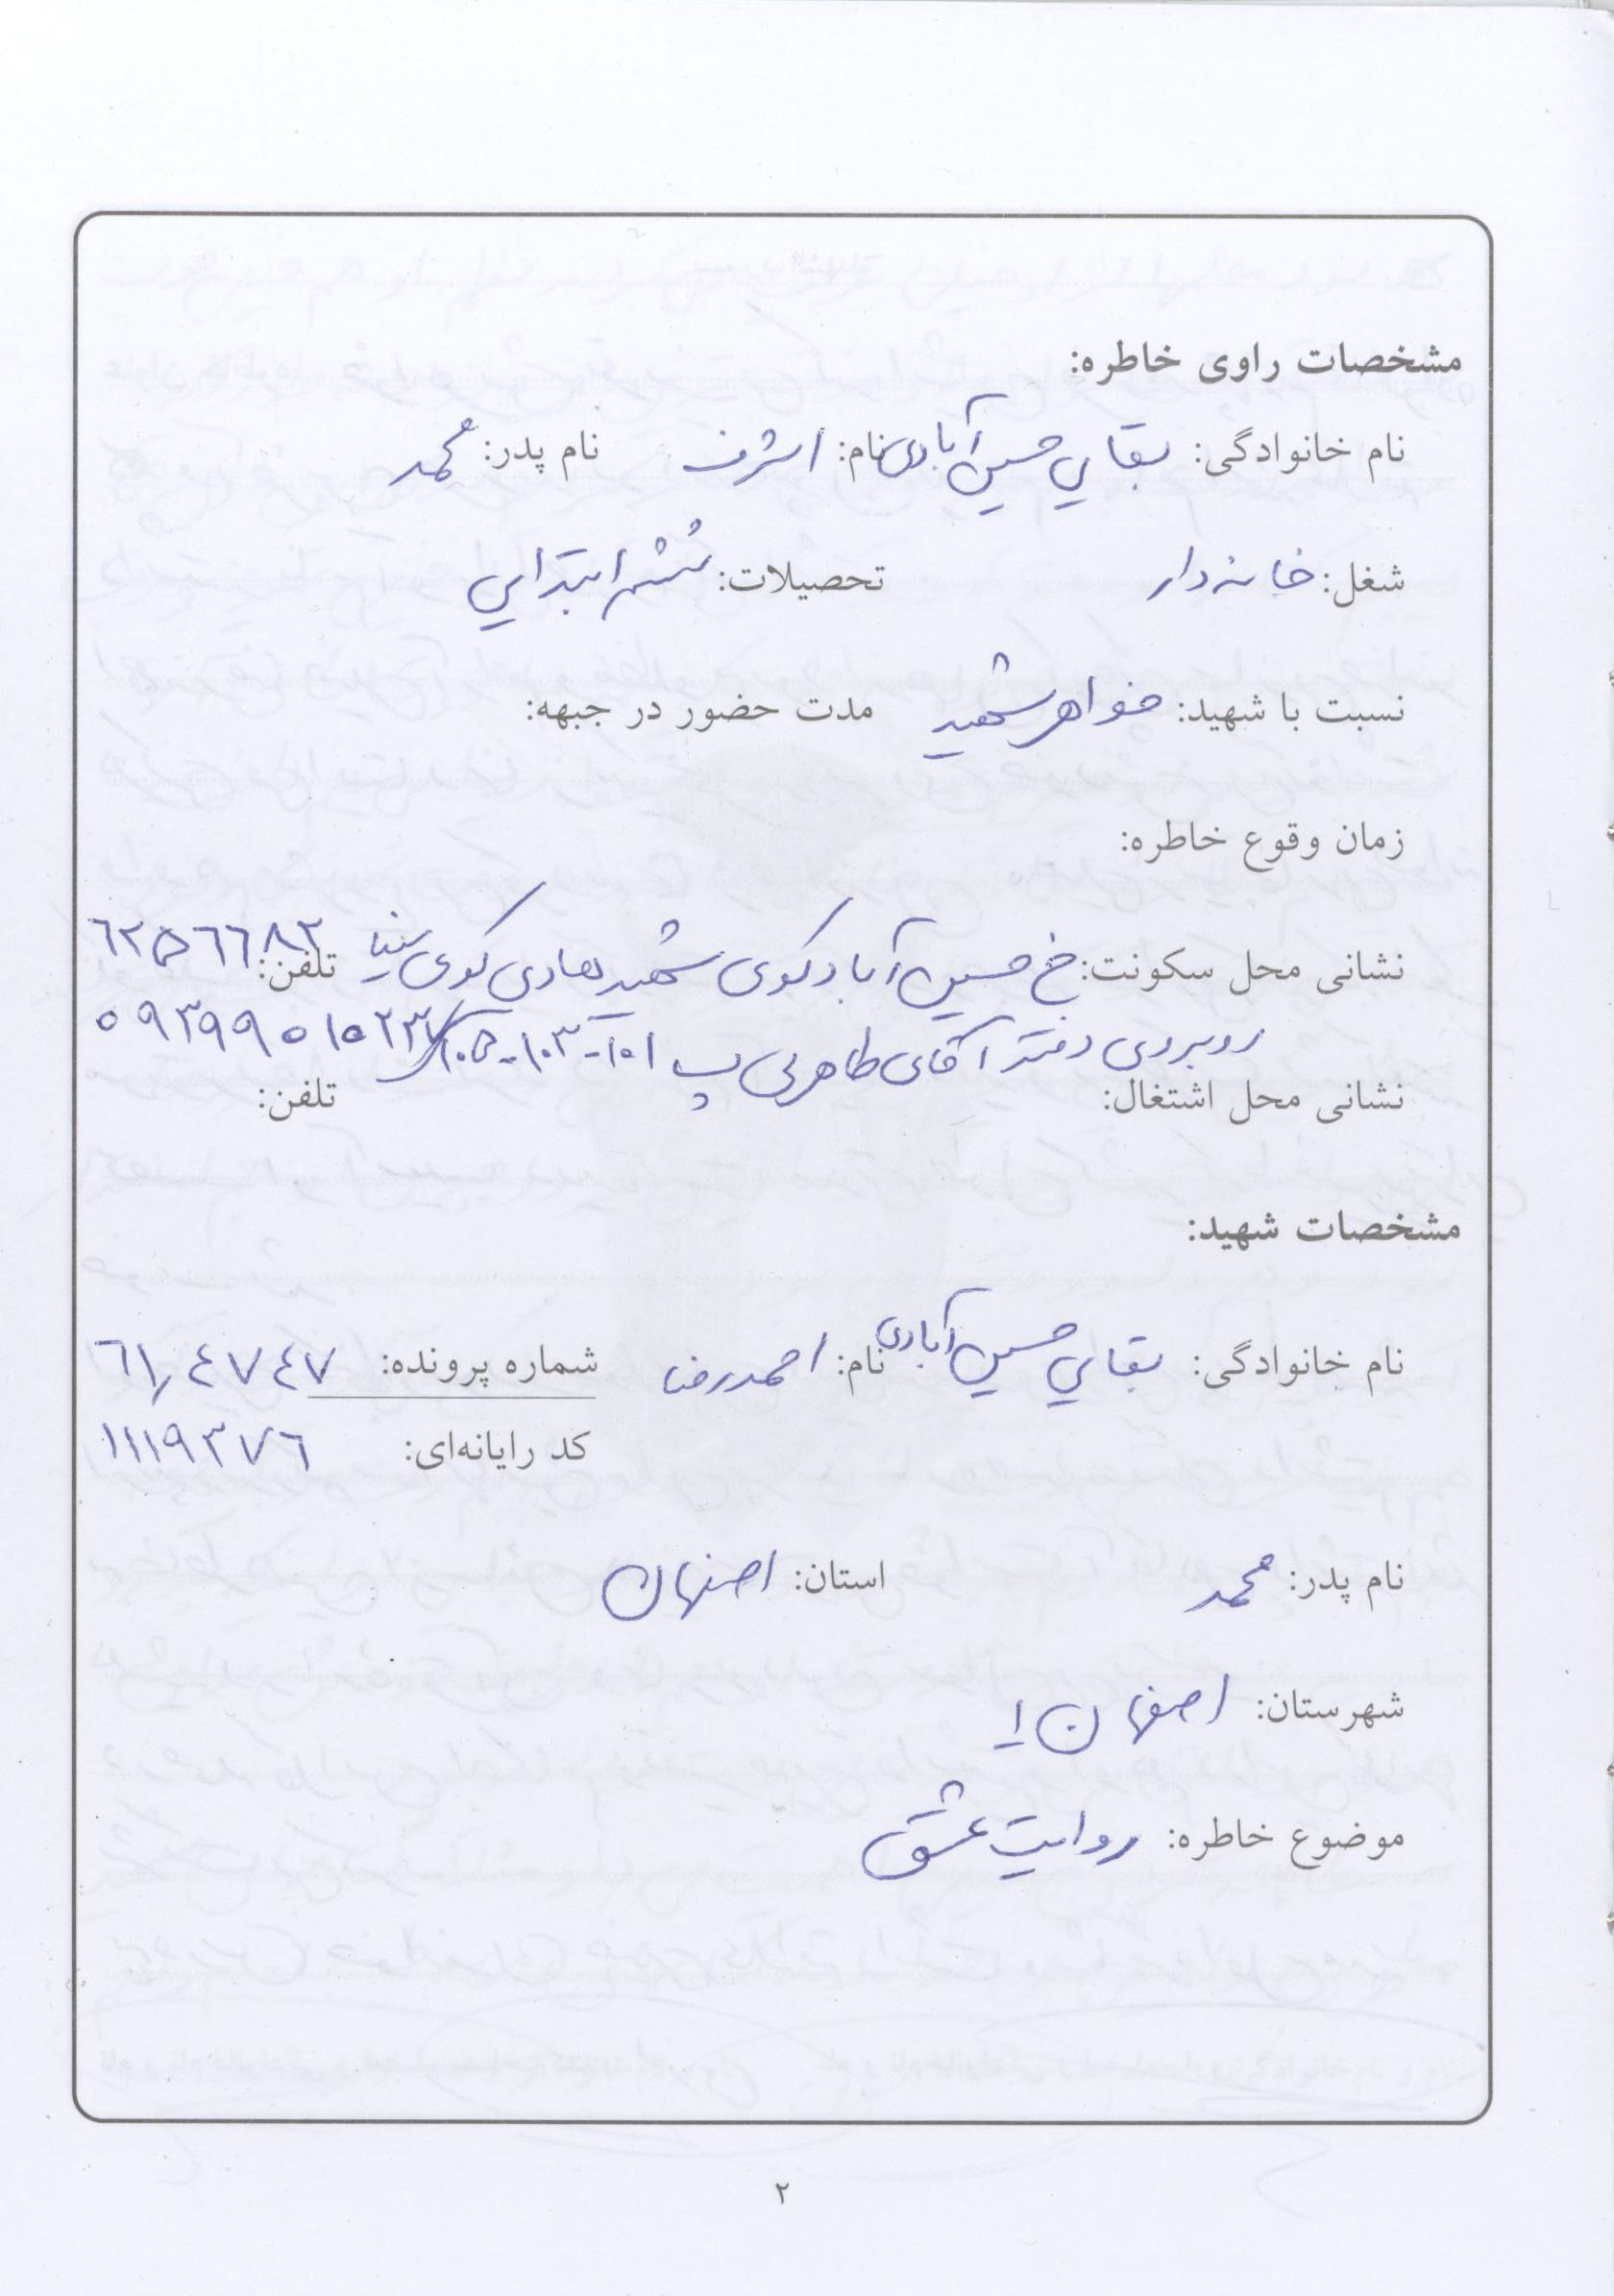 مشخصات راوی خاطره:
نام خانوادگی: بقایی حسین آبادی نام: اشرف نام پدر: محمد
شغل: خانه دار تحصیلات: ششم ابتدایی
نسبت با شهید: خواهر شهید مدت حضور در جبهه:
زمان وقوع خاطره:
نشانی محل سکونت: خ حسین آباد کوی شهید هادی کوی تلفن: ٦٢٥٦٦٨٣
روبروی دفتر آقای طاهری پ ١٠١-١٠٣-١٠٥
نشانی محل اشتغال: تلفن:
مشخصات شهید:
نام خانوادگی: بقایی حسین آبادی نام: احمدرضا شماره پرونده: ٦١,٤٧٤٧
کد رایانه‌ای: ١١١٩٣٧٦
نام پدر: محمد استان: اصفهان
شهرستان: اصفهان ١
موضوع خاطره: روایت عشق
٢